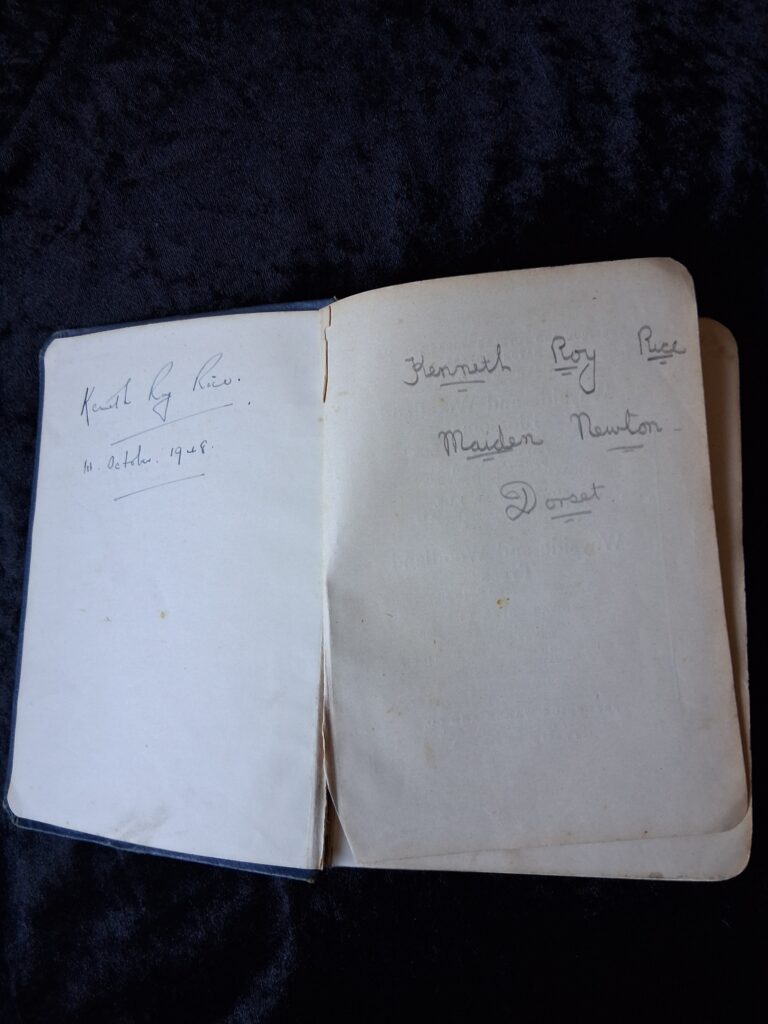 Kenneth Roy Rice.
October. 1948.
Kenneth Roy Rice
Maiden Newton -
Dorset.